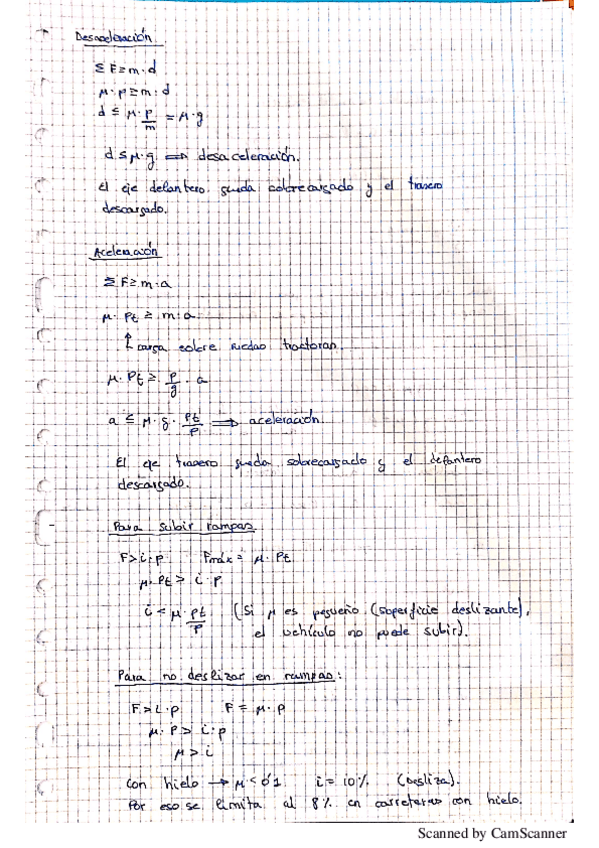 Desaceleración
Σ F ≥ m · d
μ · p ≥ m · d
d ≤ μ · p/m = μ · g
d ≤ μ · g ⟹ desaceleración.
El eje delantero queda sobrecargado y el trasero
descargado.
Aceleración
Σ F ≥ m · a
μ · Pt ≥ m · a
↑ carga sobre ruedas tractoras.
μ · Pt ≥ P/g · a
a ≤ μ · g · Pt/P ⟹ aceleración.
El eje trasero queda sobrecargado y el delantero
descargado.
Para subir rampas
F > i · p Fmáx = μ · Pt
μ · Pt > i · P
i < μ · Pt/P (Si μ es pequeño (superficie deslizante),
el vehículo no puede subir).
Para no deslizar en rampas:
F > i · p F = μ · p
μ · P > i · p
μ > i
Con hielo → μ < 0'1 i = 10% (desliza).
Por eso se limita al 8% en carreteras con hielo.
Scanned by CamScanner